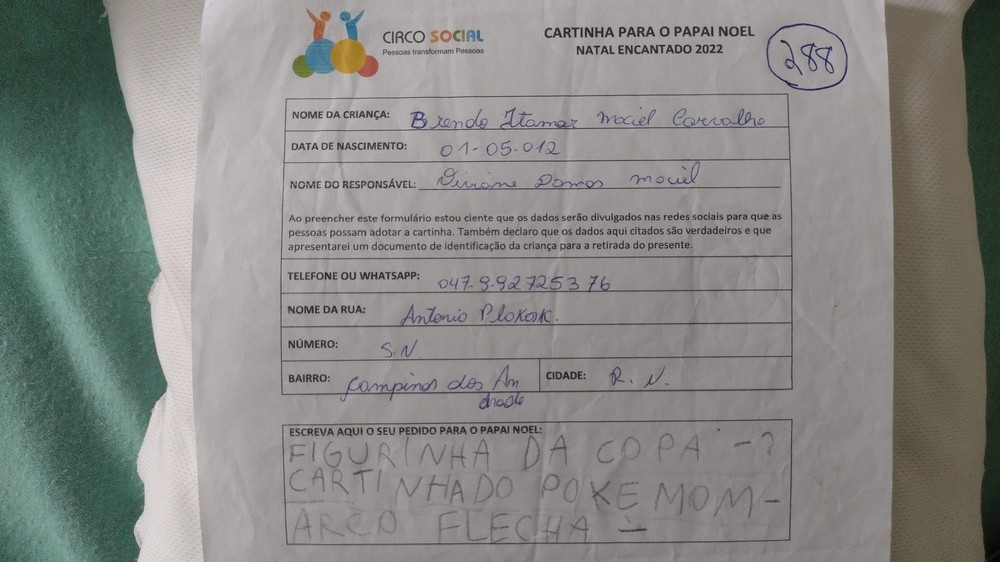 CIRCO SOCIAL
Pessoas transformam Pessoas
CARTINHA PARA O PAPAI NOEL
NATAL ENCANTADO 2022
288
NOME DA CRIANÇA: Brendo Itamar Maciel Carvalho
DATA DE NASCIMENTO: 01-05-012
NOME DO RESPONSÁVEL: Maciel
Ao preencher este formulário estou ciente que os dados serão divulgados nas redes sociais para que as
pessoas possam adotar a cartinha. Também declaro que os dados aqui citados são verdadeiros e que
apresentarei um documento de identificação da criança para a retirada do presente.
TELEFONE OU WHATSAPP: 047-9-92725376
NOME DA RUA: Antonio
NÚMERO: S.N.
BAIRRO: Campina dos An
drade
CIDADE: R. N.
ESCREVA AQUI O SEU PEDIDO PARA O PAPAI NOEL:
FIGURINHA DA COPA -?
CARTINHA DO POKEMOM-
ARCO FLECHA -